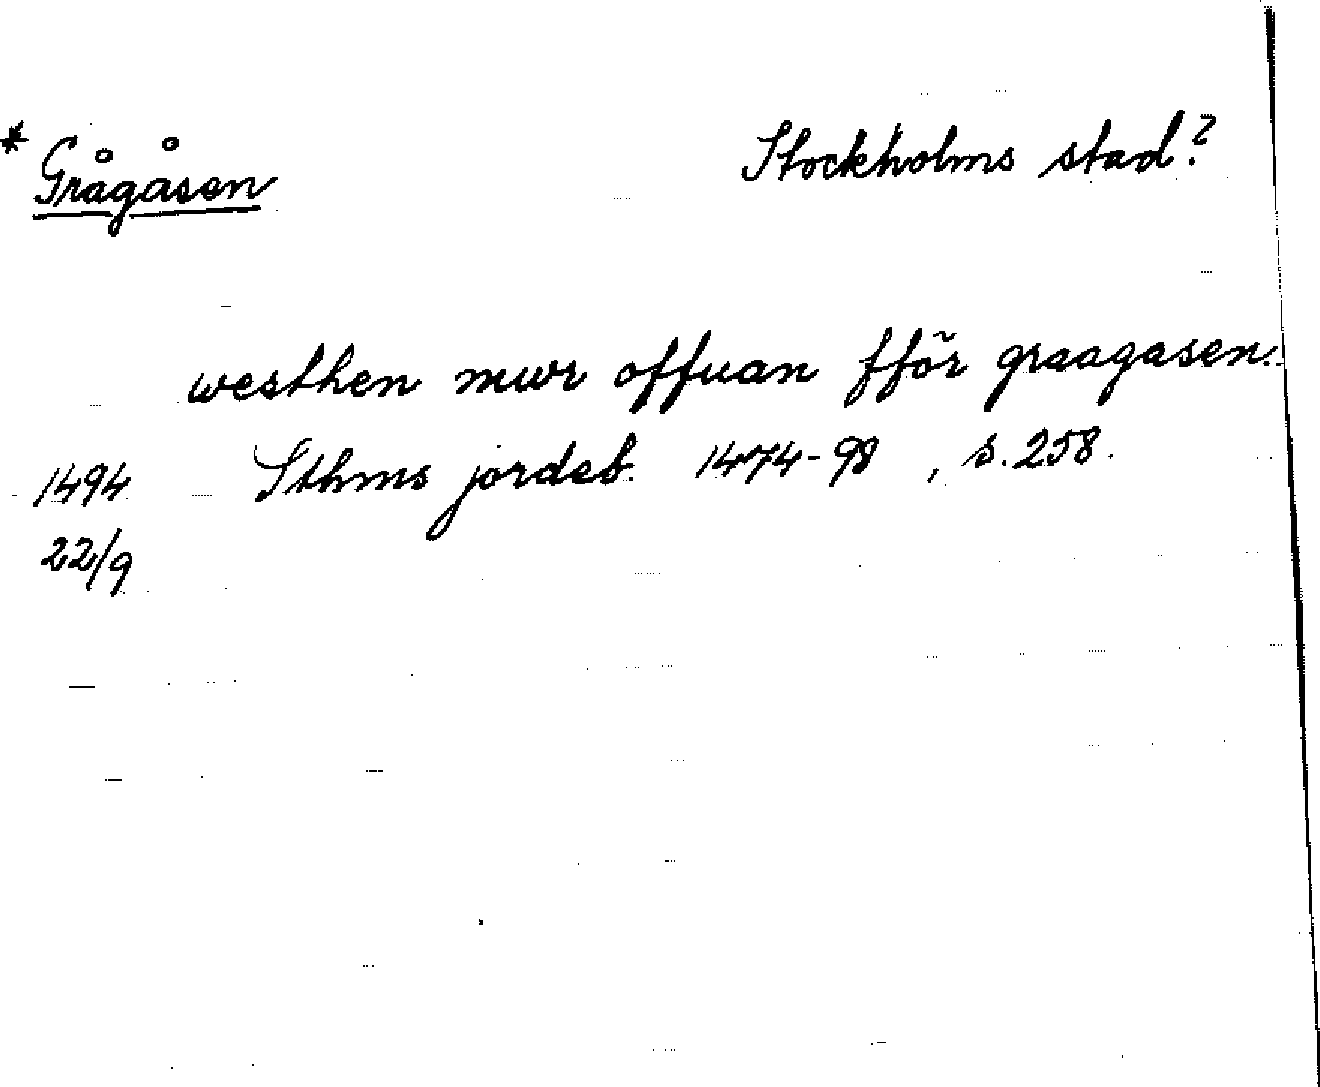 * Grågåsen
Stockholms stad?
westhen mwr offuan fför graagasen.
1494 Sthms jordeb. 1474-98, s. 258.
22/9